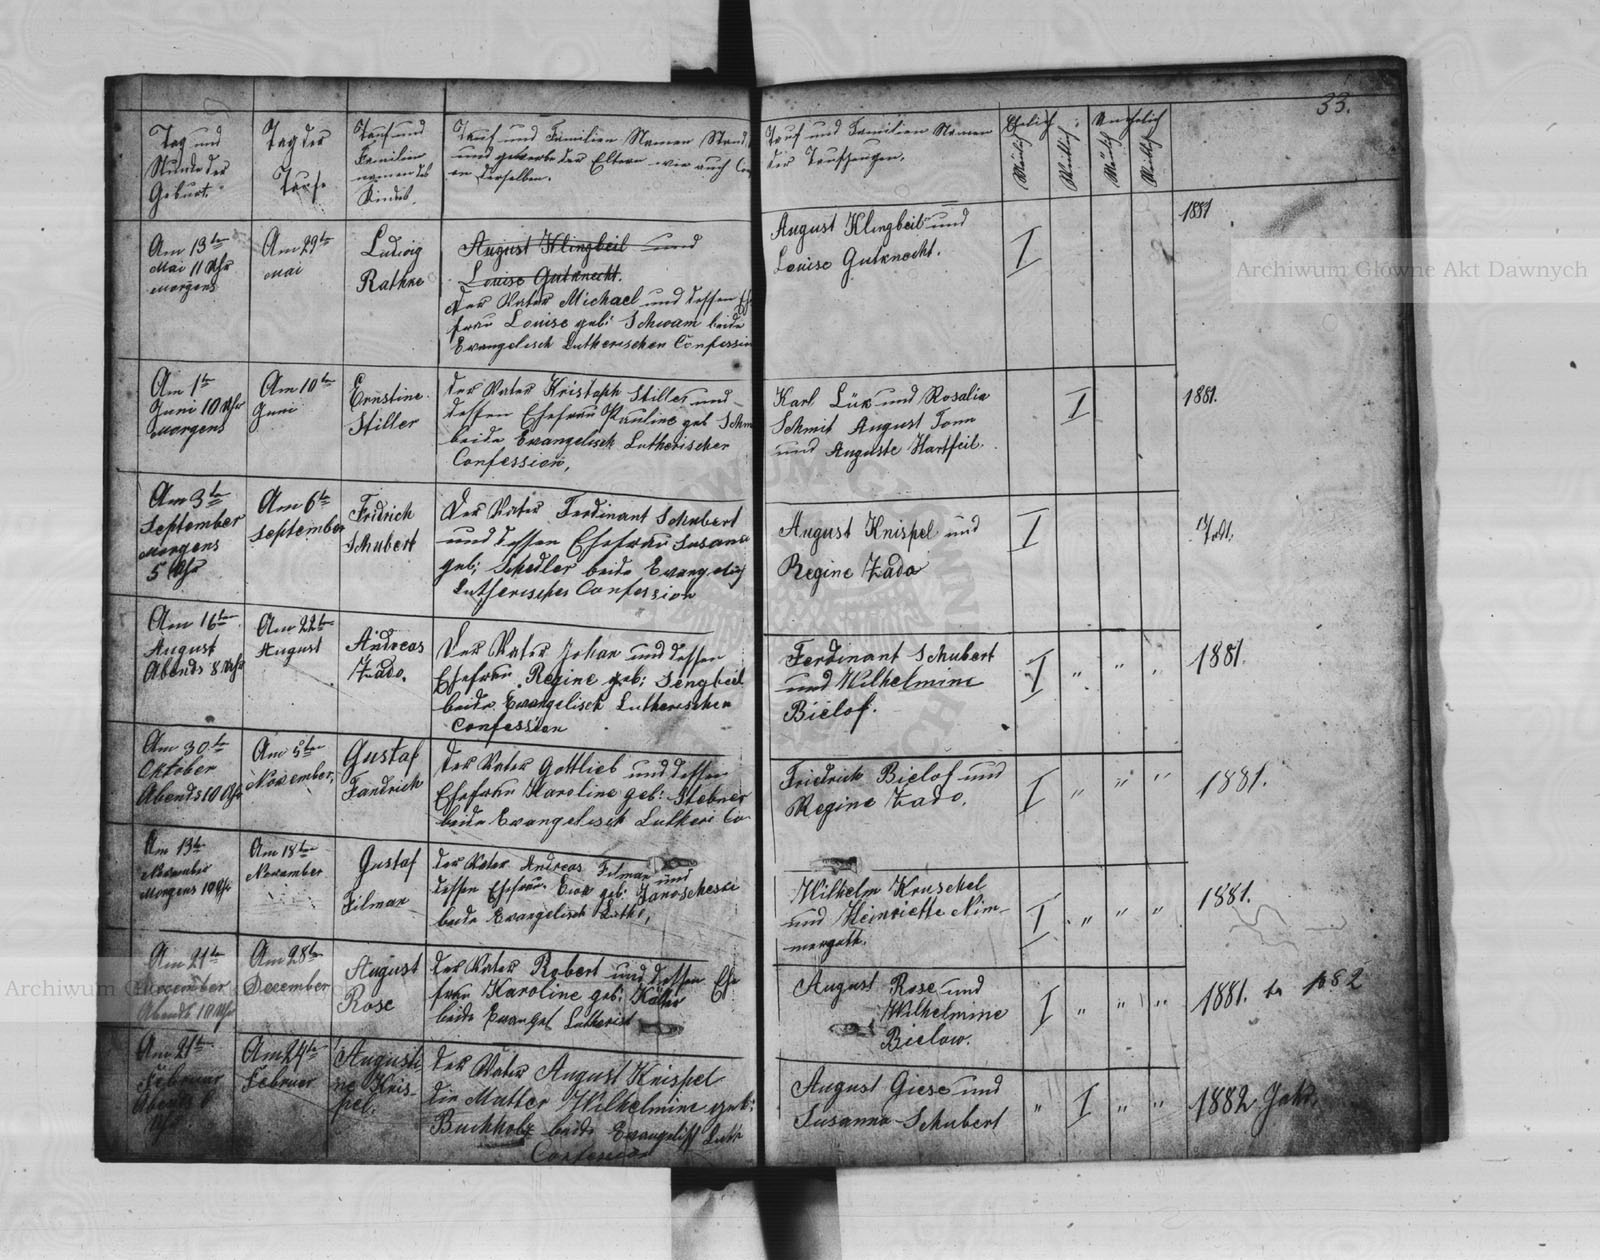 33.
Tag und
Stunde der
Geburt.
Tag der
Taufe
Tauf und
Familien
namen des
Kindes.
Tauf und Familien Namen Stand
und gewerbe der Eltern wie auch Con
en derselben.
Tauf und Familien Namen
der Taufzeugen.
Ehelich
Unehelich
Am 13te
Mai 11 Uhr
Morgens
Am 29te
Mai
Ludwig
Rathne
August Klingbeil und
Louise Gutknecht.
der Vater Michael und dessen Ehe
frau Louise geb: Schwam beide
Evangelisch Lutherischen Confession
August Klingbeil und
Louise Gutknecht.
I
1881
Am 1te
Juni 10 Uhr
Morgens
Am 10te
Juni
Ernstine
Stiller
der Vater Kristoph Stiller und
dessen Ehefrau Pauline geb Schm
beide Evangelisch Lutherischer
Confession,
Karl Lük und Rosalie
Schmit August Tonn
und Auguste Hartfeil.
I
1881.
Am 3te
September
Morgens
5 Uhr
Am 6te
September
Fridrich
Schubert
Der Vater Ferdinant Schubert
und dessen Ehefrau Susane
geb; Schedler beide Evangelisch
Lutherischer Confession
August Knispel und
Regine Zado
I
Am 16te
August
Abends 8 Uhr
Am 22te
August
Andreas
Zado.
Der Vater Johan und dessen
Ehefrau Regine geb; Sengbeil
beide Evangelisch Lutherischen
Confession
Ferdinant Schubert
und Wilhelmine
Bielof.
I " " "
1881.
Am 30te
Oktober
Abends 10 Uhr
Am 5te
November,
Gustaf
Fandrich
der Vater Gottlieb und dessen
Ehefrau Karoline geb: Stebner
beide Evangelisch Lutheri Co
Friedrich Bielof und
Regine Zado.
I " " "
1881.
Am 13te
November
Morgens 10 Uhr
Am 18te
November
Gustaf
Filman
der Vater Andreas Filman und
dessen Ehefrau Eva geb: Janoscheski
beide Evangelisch Luth,
Wilhelm Kruschel
und Heinriette Nim-
mergutt.
I " " "
1881.
Am 21te
Abends 10 Uhr
Am 28te
December
August
Rose
der Vater Robert und dessen Ehe
frau Karoline geb: Käller
beide Evangel Lutherist
August Rose und
Wilhelmine
Bielow.
I " " "
1881. 1882
Am 21te
Februar
Abends 6
Uhr
Am 24te
Februar
Augusti
ne Knis-
pel.
der Vater August Knispel
die Mutter Wilhelmine geb:
Buchholz beide Evangelisch Luth
Confession
August Giese und
Susanna Schubert
" I " "
1882 Jahr.
Archiwum Główne Akt Dawnych